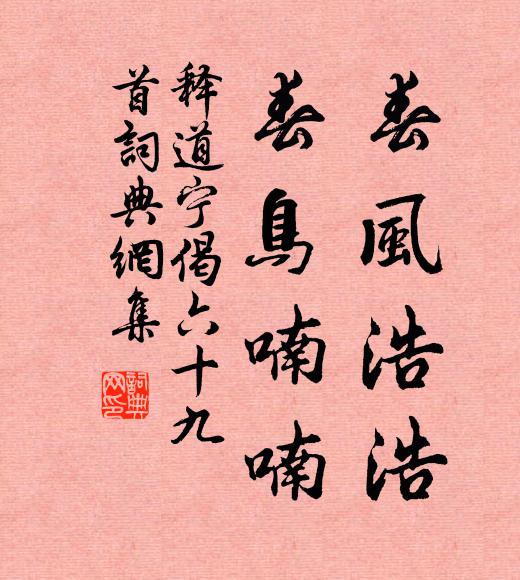 春風浩浩
春鳥喃喃
释道宁偈六十九
首詞典網集
詞典
网印